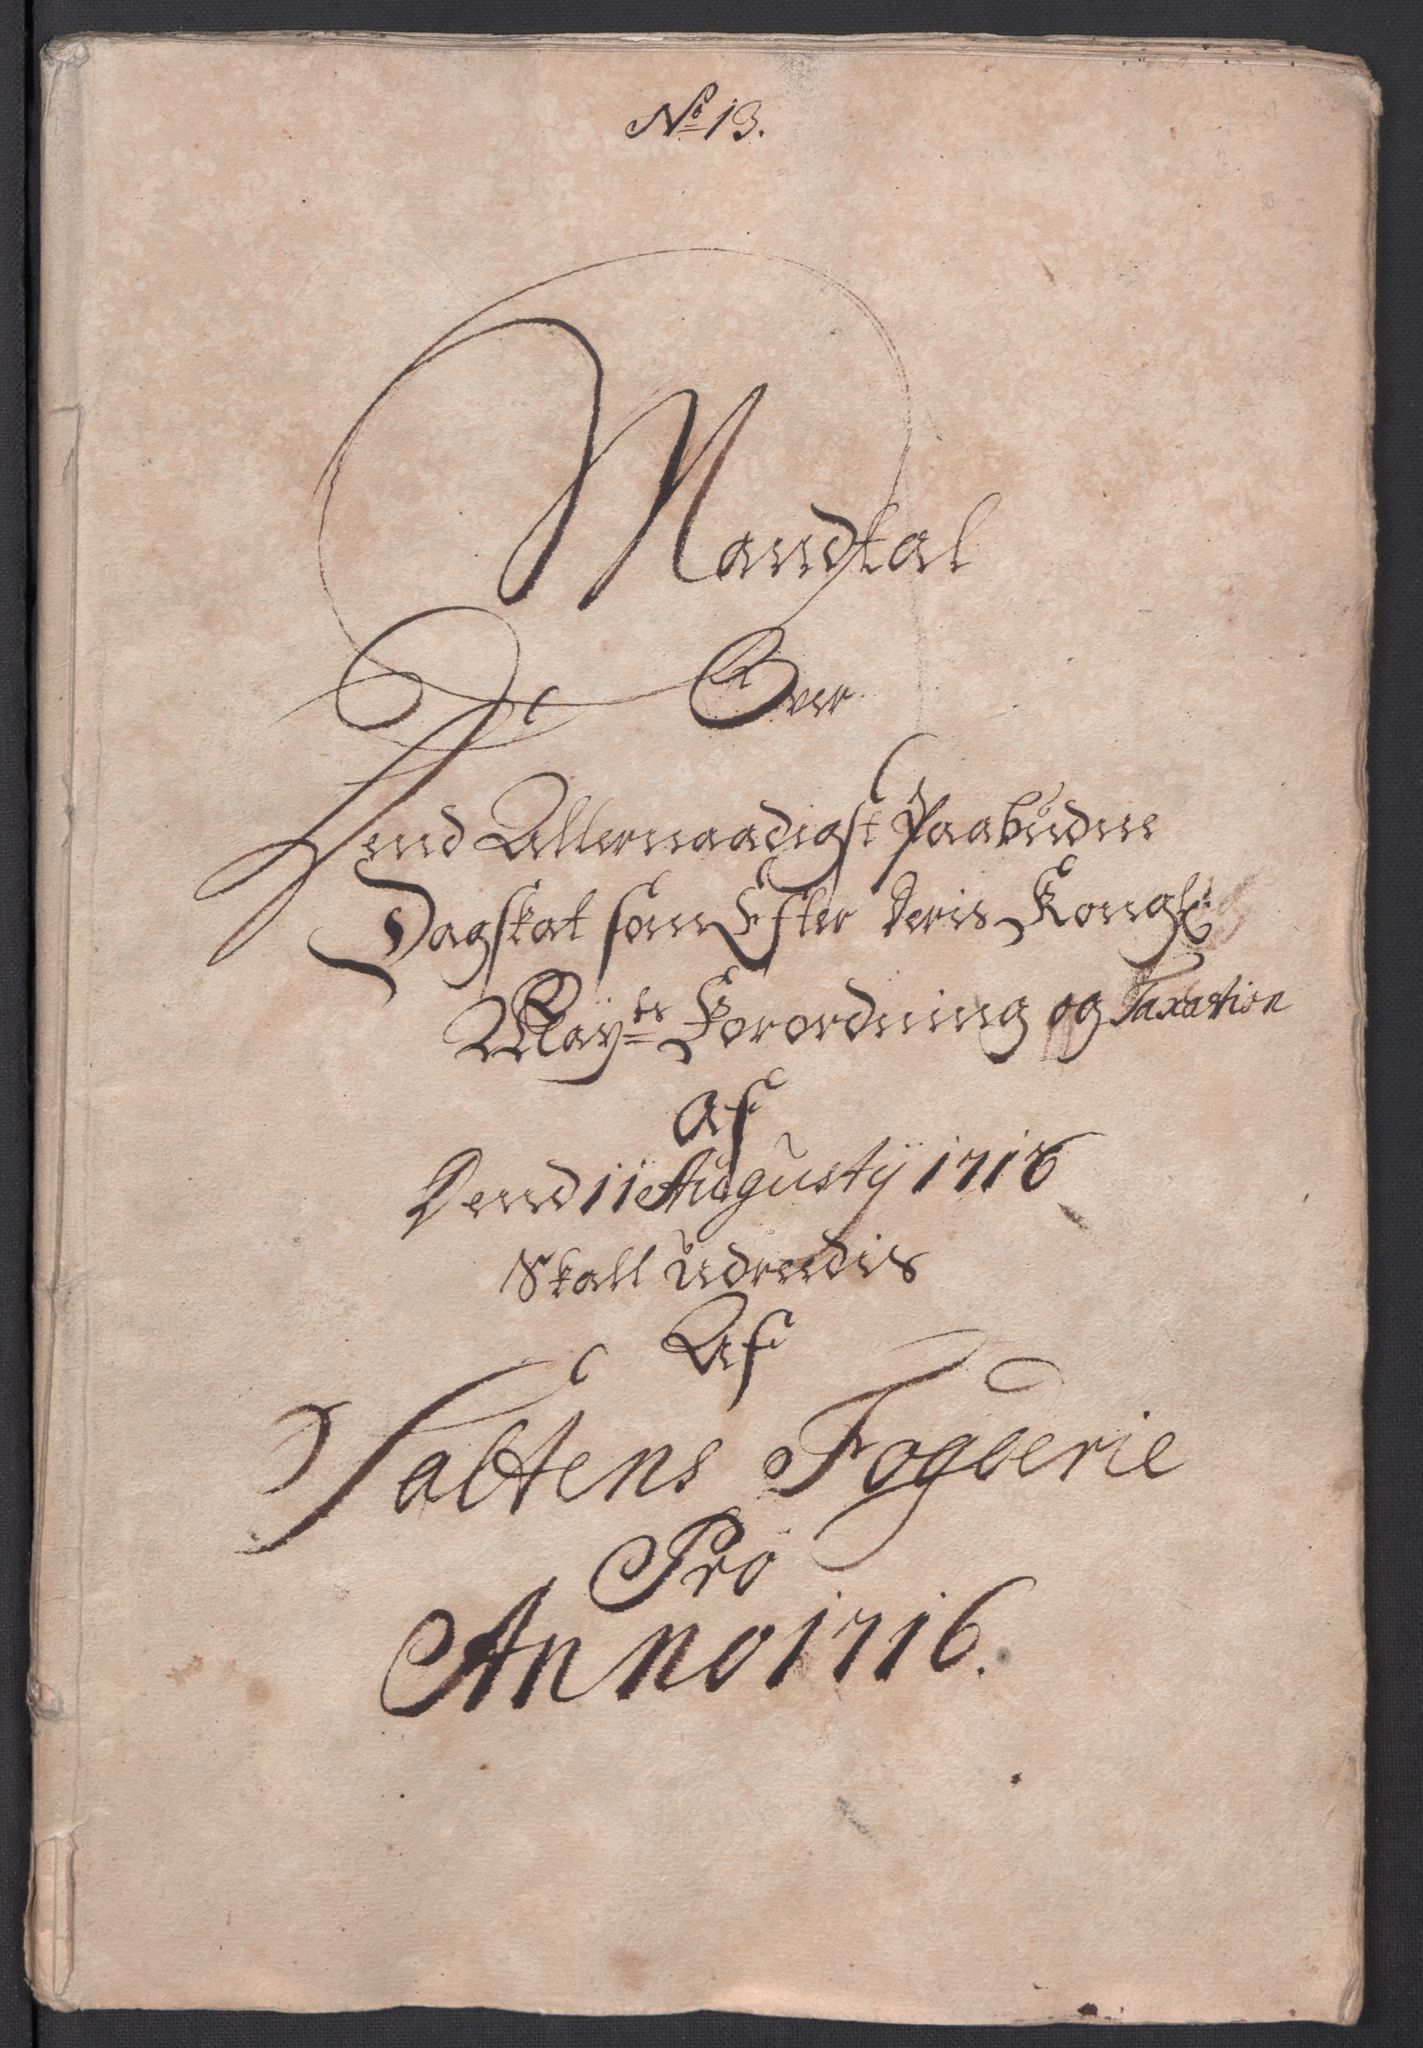 No 13.
Mandtal
Over
Dend Allernaadigst Paabudne
Dagskat som Efter Deris Kongl:
Mayts Forordning og Taxation
af
Dend 11 Augustij 1716
Skall udredis
Af
Saltens Fogderie
Pro
Anno 1716.